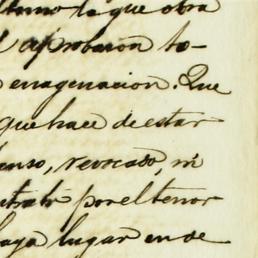 ltimo lo que obra
aprobaron to-
enagenacion. Que
que hace de estar
enso, revocado, ni
por el tenor
haya lugar en de